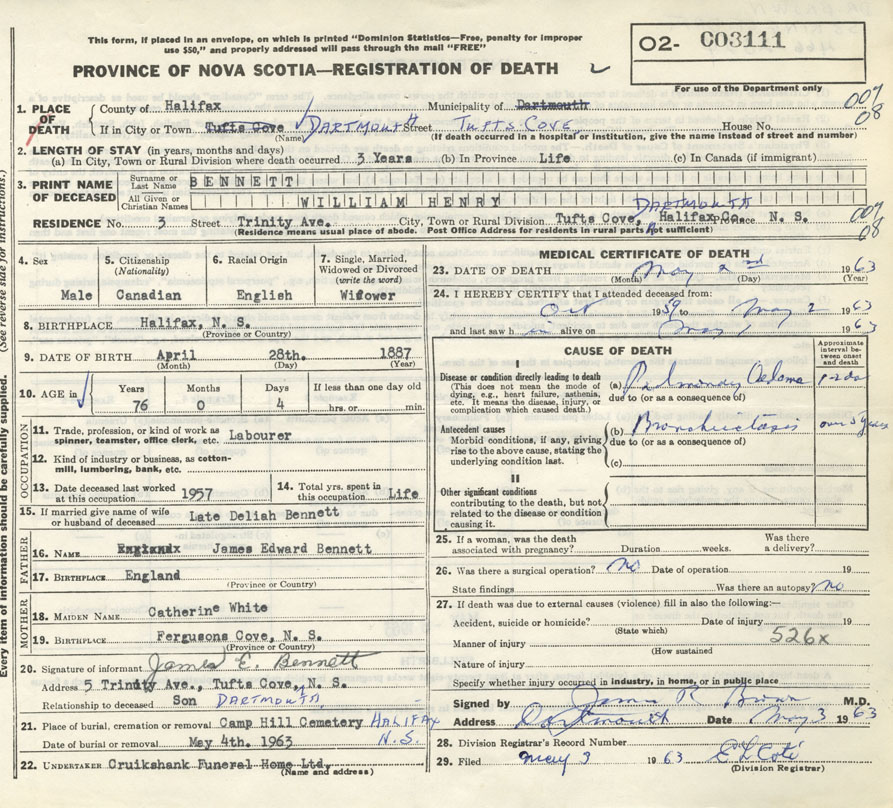 This form, if placed in an envelope, on which is printed "Dominion Statistics—Free, penalty for improper
use $50," and properly addressed will pass through the mail "FREE"
O2- C03111
PROVINCE OF NOVA SCOTIA—REGISTRATION OF DEATH
For use of the Department only
1. PLACE OF DEATH
County of Halifax Municipality of Dartmouth 007
If in City or Town Tufts Cove DARTMOUTH Street TUFTS COVE, House No. 08
(Name) (If death occurred in a hospital or institution, give the name instead of street and number)
2. LENGTH OF STAY (in years, months and days)
(a) In City, Town or Rural Division where death occurred 3 Years (b) In Province Life (c) In Canada (if immigrant)
3. PRINT NAME OF DECEASED
Surname or Last Name BENNETT
All Given or Christian Names WILLIAM HENRY
DARTMOUTH
RESIDENCE No. 3 Street Trinity Ave. City, Town or Rural Division Tufts Cove, Halifax Co. Province N. S. 007
(Residence means usual place of abode. Post Office Address for residents in rural parts not sufficient) 08
4. Sex Male
5. Citizenship (Nationality) Canadian
6. Racial Origin English
7. Single, Married, Widowed or Divorced (write the word) Widower
8. BIRTHPLACE Halifax, N. S.
(Province or Country)
9. DATE OF BIRTH April 28th. 1887
(Month) (Day) (Year)
10. AGE in Years 76 Months 0 Days 4 If less than one day old hrs. or min.
OCCUPATION
11. Trade, profession, or kind of work as spinner, teamster, office clerk, etc. Labourer
12. Kind of industry or business, as cotton-mill, lumbering, bank, etc.
13. Date deceased last worked at this occupation 1957
14. Total yrs. spent in this occupation Life
15. If married give name of wife or husband of deceased Late Deliah Bennett
FATHER
16. NAME James Edward Bennett
17. BIRTHPLACE England
(Province or Country)
MOTHER
18. MAIDEN NAME Catherine White
19. BIRTHPLACE Fergusons Cove, N. S.
(Province or Country)
20. Signature of informant James E. Bennett
Address 5 Trinity Ave., Tufts Cove, N. S.
Relationship to deceased Son DARTMOUTH,
21. Place of burial, cremation or removal Camp Hill Cemetery HALIFAX
Date of burial or removal May 4th. 1963 N.S.
22. UNDERTAKER Cruikshank Funeral Home Ltd.
(Name and address)
MEDICAL CERTIFICATE OF DEATH
23. DATE OF DEATH May 2nd 1963
(Month) (Day) (Year)
24. I HEREBY CERTIFY that I attended deceased from:
Oct 1959 to May 2 1963
and last saw h im alive on May 1 1963
CAUSE OF DEATH
Approximate interval between onset and death
I
Disease or condition directly leading to death
(This does not mean the mode of dying, e.g., heart failure, asthenia, etc. It means the disease, injury, or complication which caused death.)
(a) Pulmonary Oedema
due to (or as a consequence of)
Antecedent causes
Morbid conditions, if any, giving rise to the above cause, stating the underlying condition last.
(b) Bronchiectasis over 5 years
due to (or as a consequence of)
(c)
II
Other significant conditions
contributing to the death, but not related to the disease or condition causing it.
25. If a woman, was the death associated with pregnancy? Duration weeks. Was there a delivery?
26. Was there a surgical operation? no Date of operation 19
State findings Was there an autopsy? no
27. If death was due to external causes (violence) fill in also the following:—
Accident, suicide or homicide? Date of injury 19
(State which)
Manner of injury 526x
(How sustained)
Nature of injury
Specify whether injury occurred in industry, in home, or in public place
Signed by James R. Brown M.D.
Address Dartmouth Date May 3 1963
28. Division Registrar's Record Number
29. Filed May 3 1963
(Division Registrar)
Every item of information should be carefully supplied. (See reverse side for instructions.)